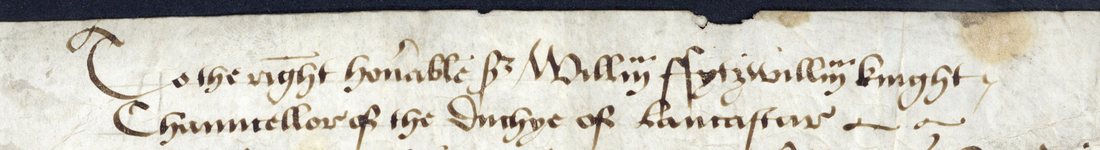 To the right honable Sr Willm ffytzwillm knight
Chauncellor of the Duchye of Lancastur